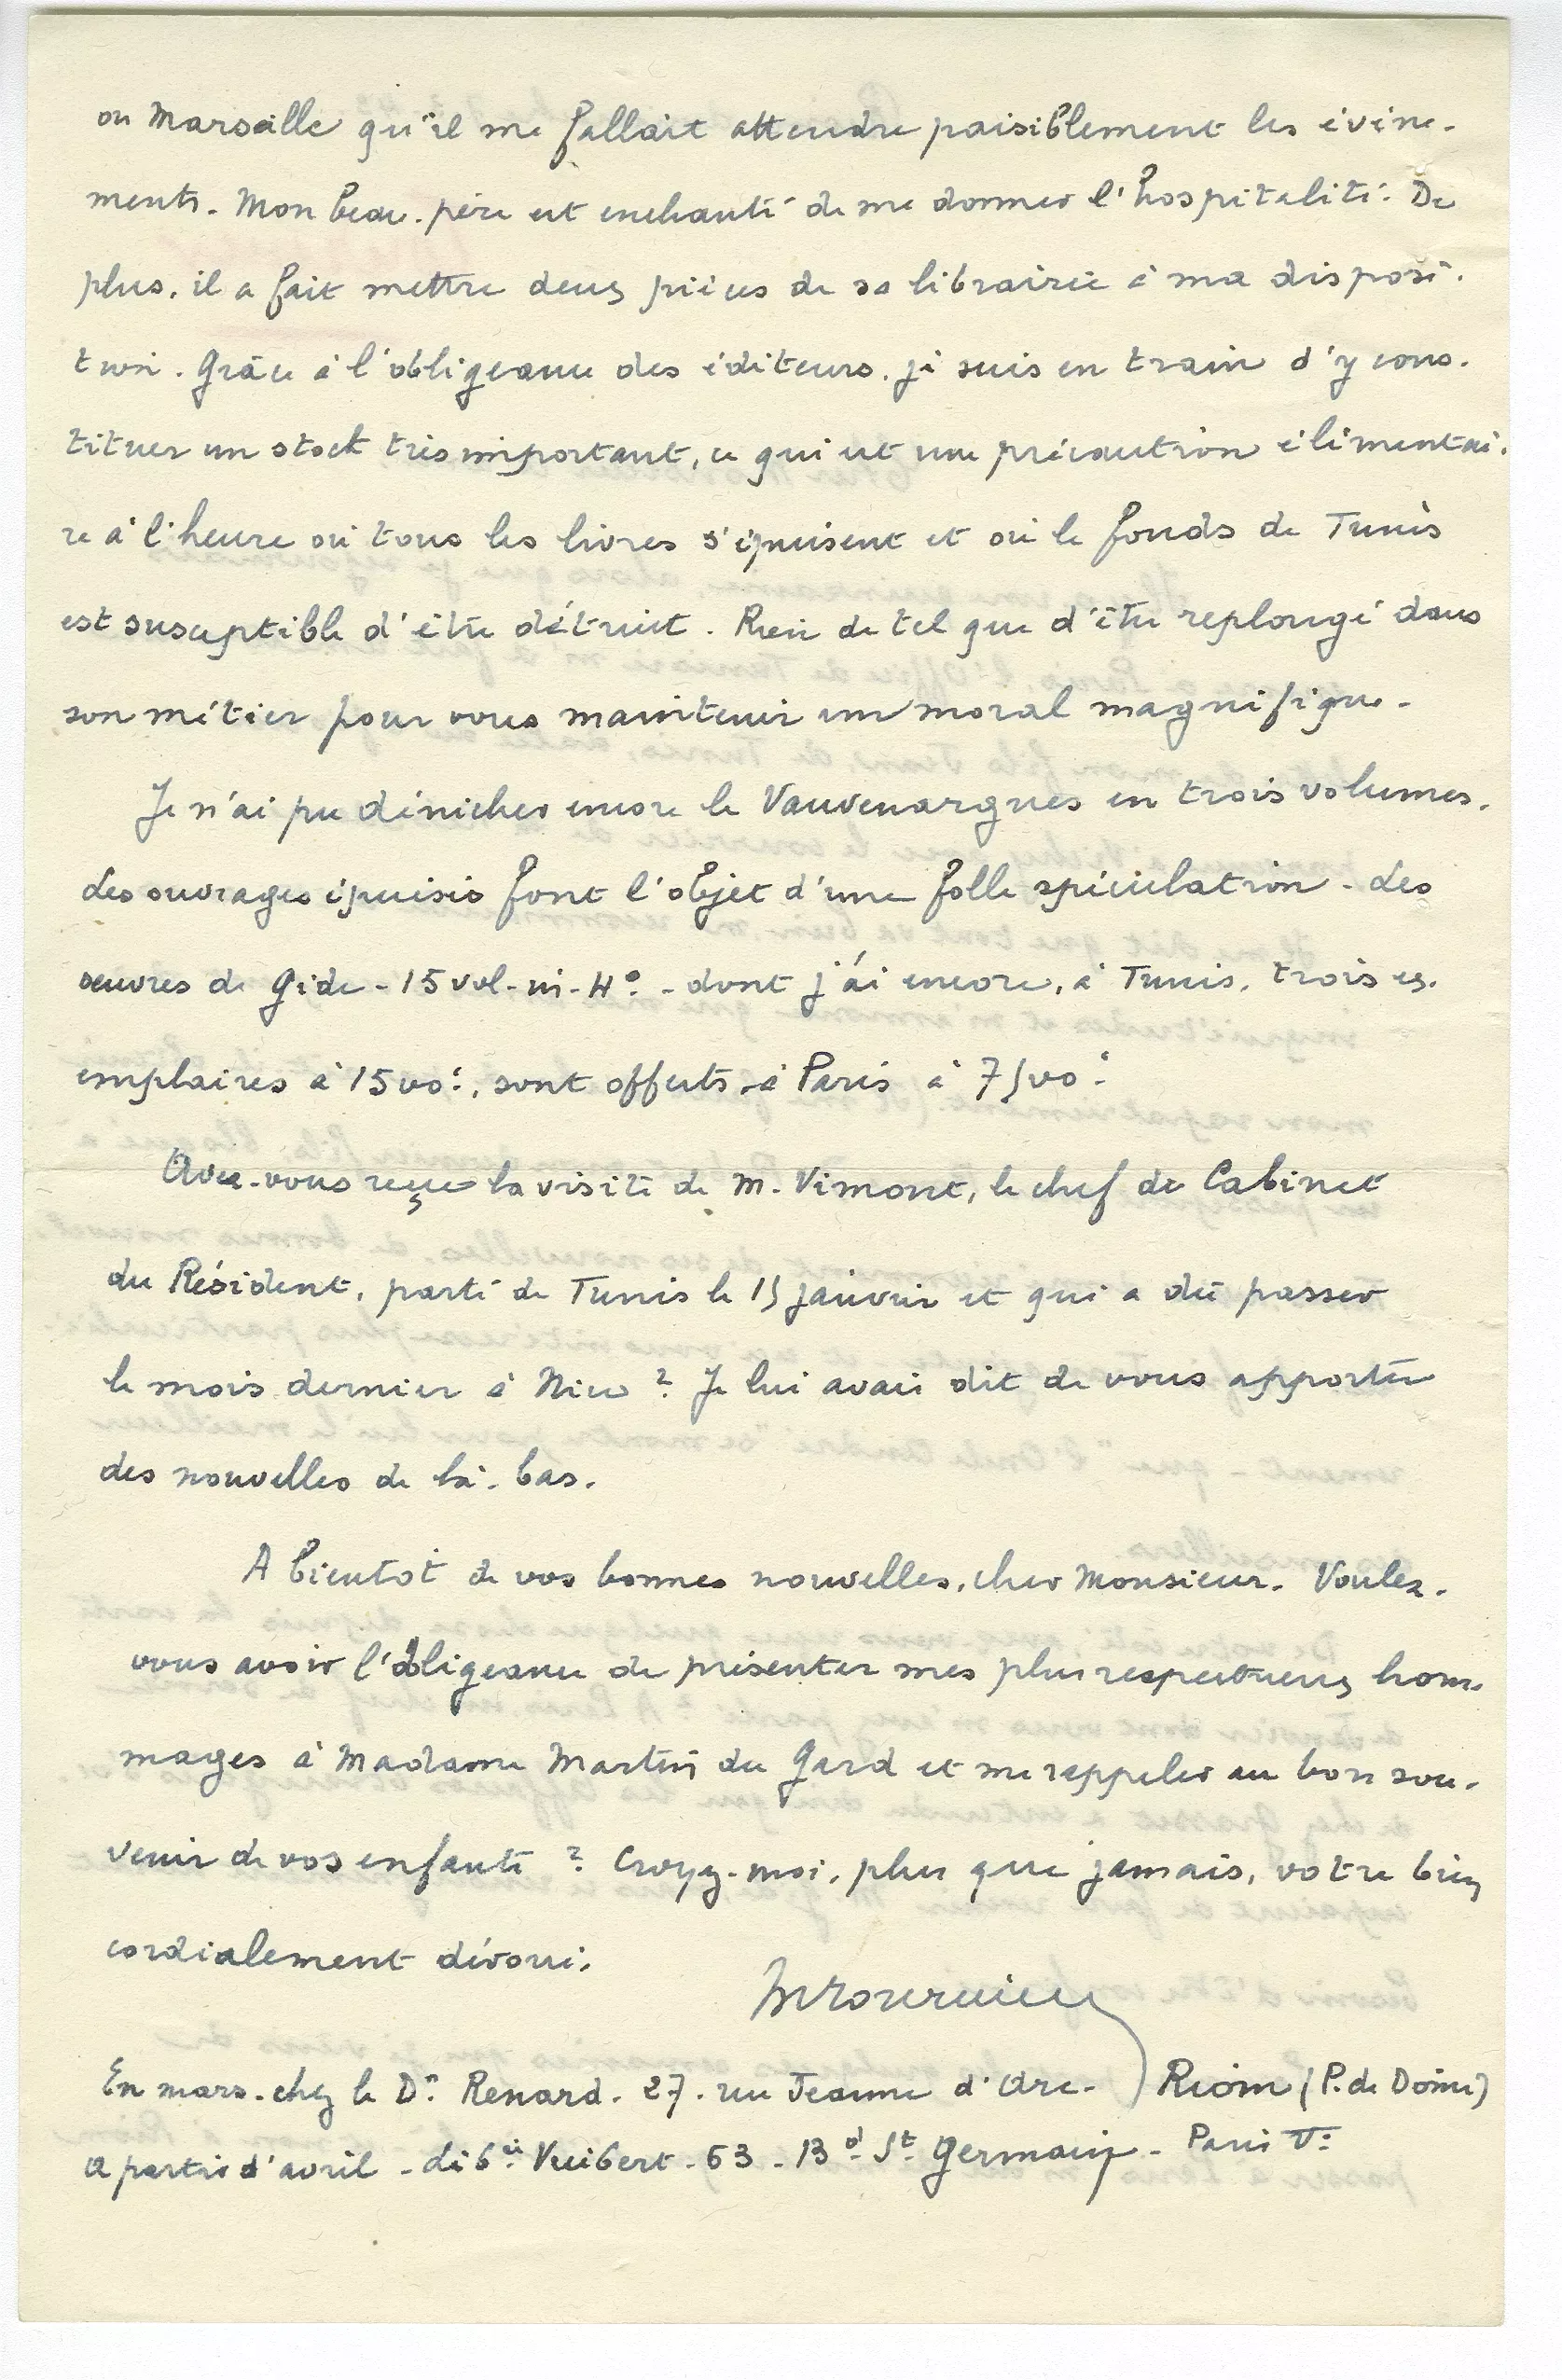 ou Marseille qu'il me fallait attendre paisiblement les évène-
ments. Mon beau-père est enchanté de me donner l'hospitalité. De
plus, il a fait mettre deux pièces de sa librairie à ma disposi-
tion. Grâce à l'obligeance des éditeurs, je suis en train d'y cons-
tituer un stock très important, ce qui est une précaution élémentai-
re à l'heure où tous les livres s'épuisent et où le fonds de Tunis
est susceptible d'être détruit. Rien de tel que d'être replongé dans
son métier pour vous maintenir un moral magnifique.
Je n'ai pu dénicher encore le Vauvenargues en trois volumes.
Les ouvrages épuisés font l'objet d'une folle spéculation. Les
oeuvres de Gide - 15 vol. in-4° - dont j'ai encore, à Tunis, trois ex-
emplaires à 1500f, sont offerts à Paris à 7500f
Avez-vous reçu la visite de M. Vimont, le chef de Cabinet
du Résident, parti de Tunis le 15 janvier et qui a dû passer
le mois dernier à Nice ? Je lui avais dit de vous apporter
des nouvelles de là-bas.
A bientôt de vos bonnes nouvelles, cher Monsieur. Voulez-
vous avoir l'obligeance de présenter mes plus respectueux hom-
mages à Madame Martin du Gard et me rappeler au bon sou-
venir de vos enfants ? Croyez-moi, plus que jamais, votre bien
cordialement dévoué.
En mars - chez le Dr Renard - 27 - rue Jeanne d'Arc - Riom (P. de Dôme)
A partir d'avril - libie Vuibert - 63 - Bd St Germain - Paris Ve